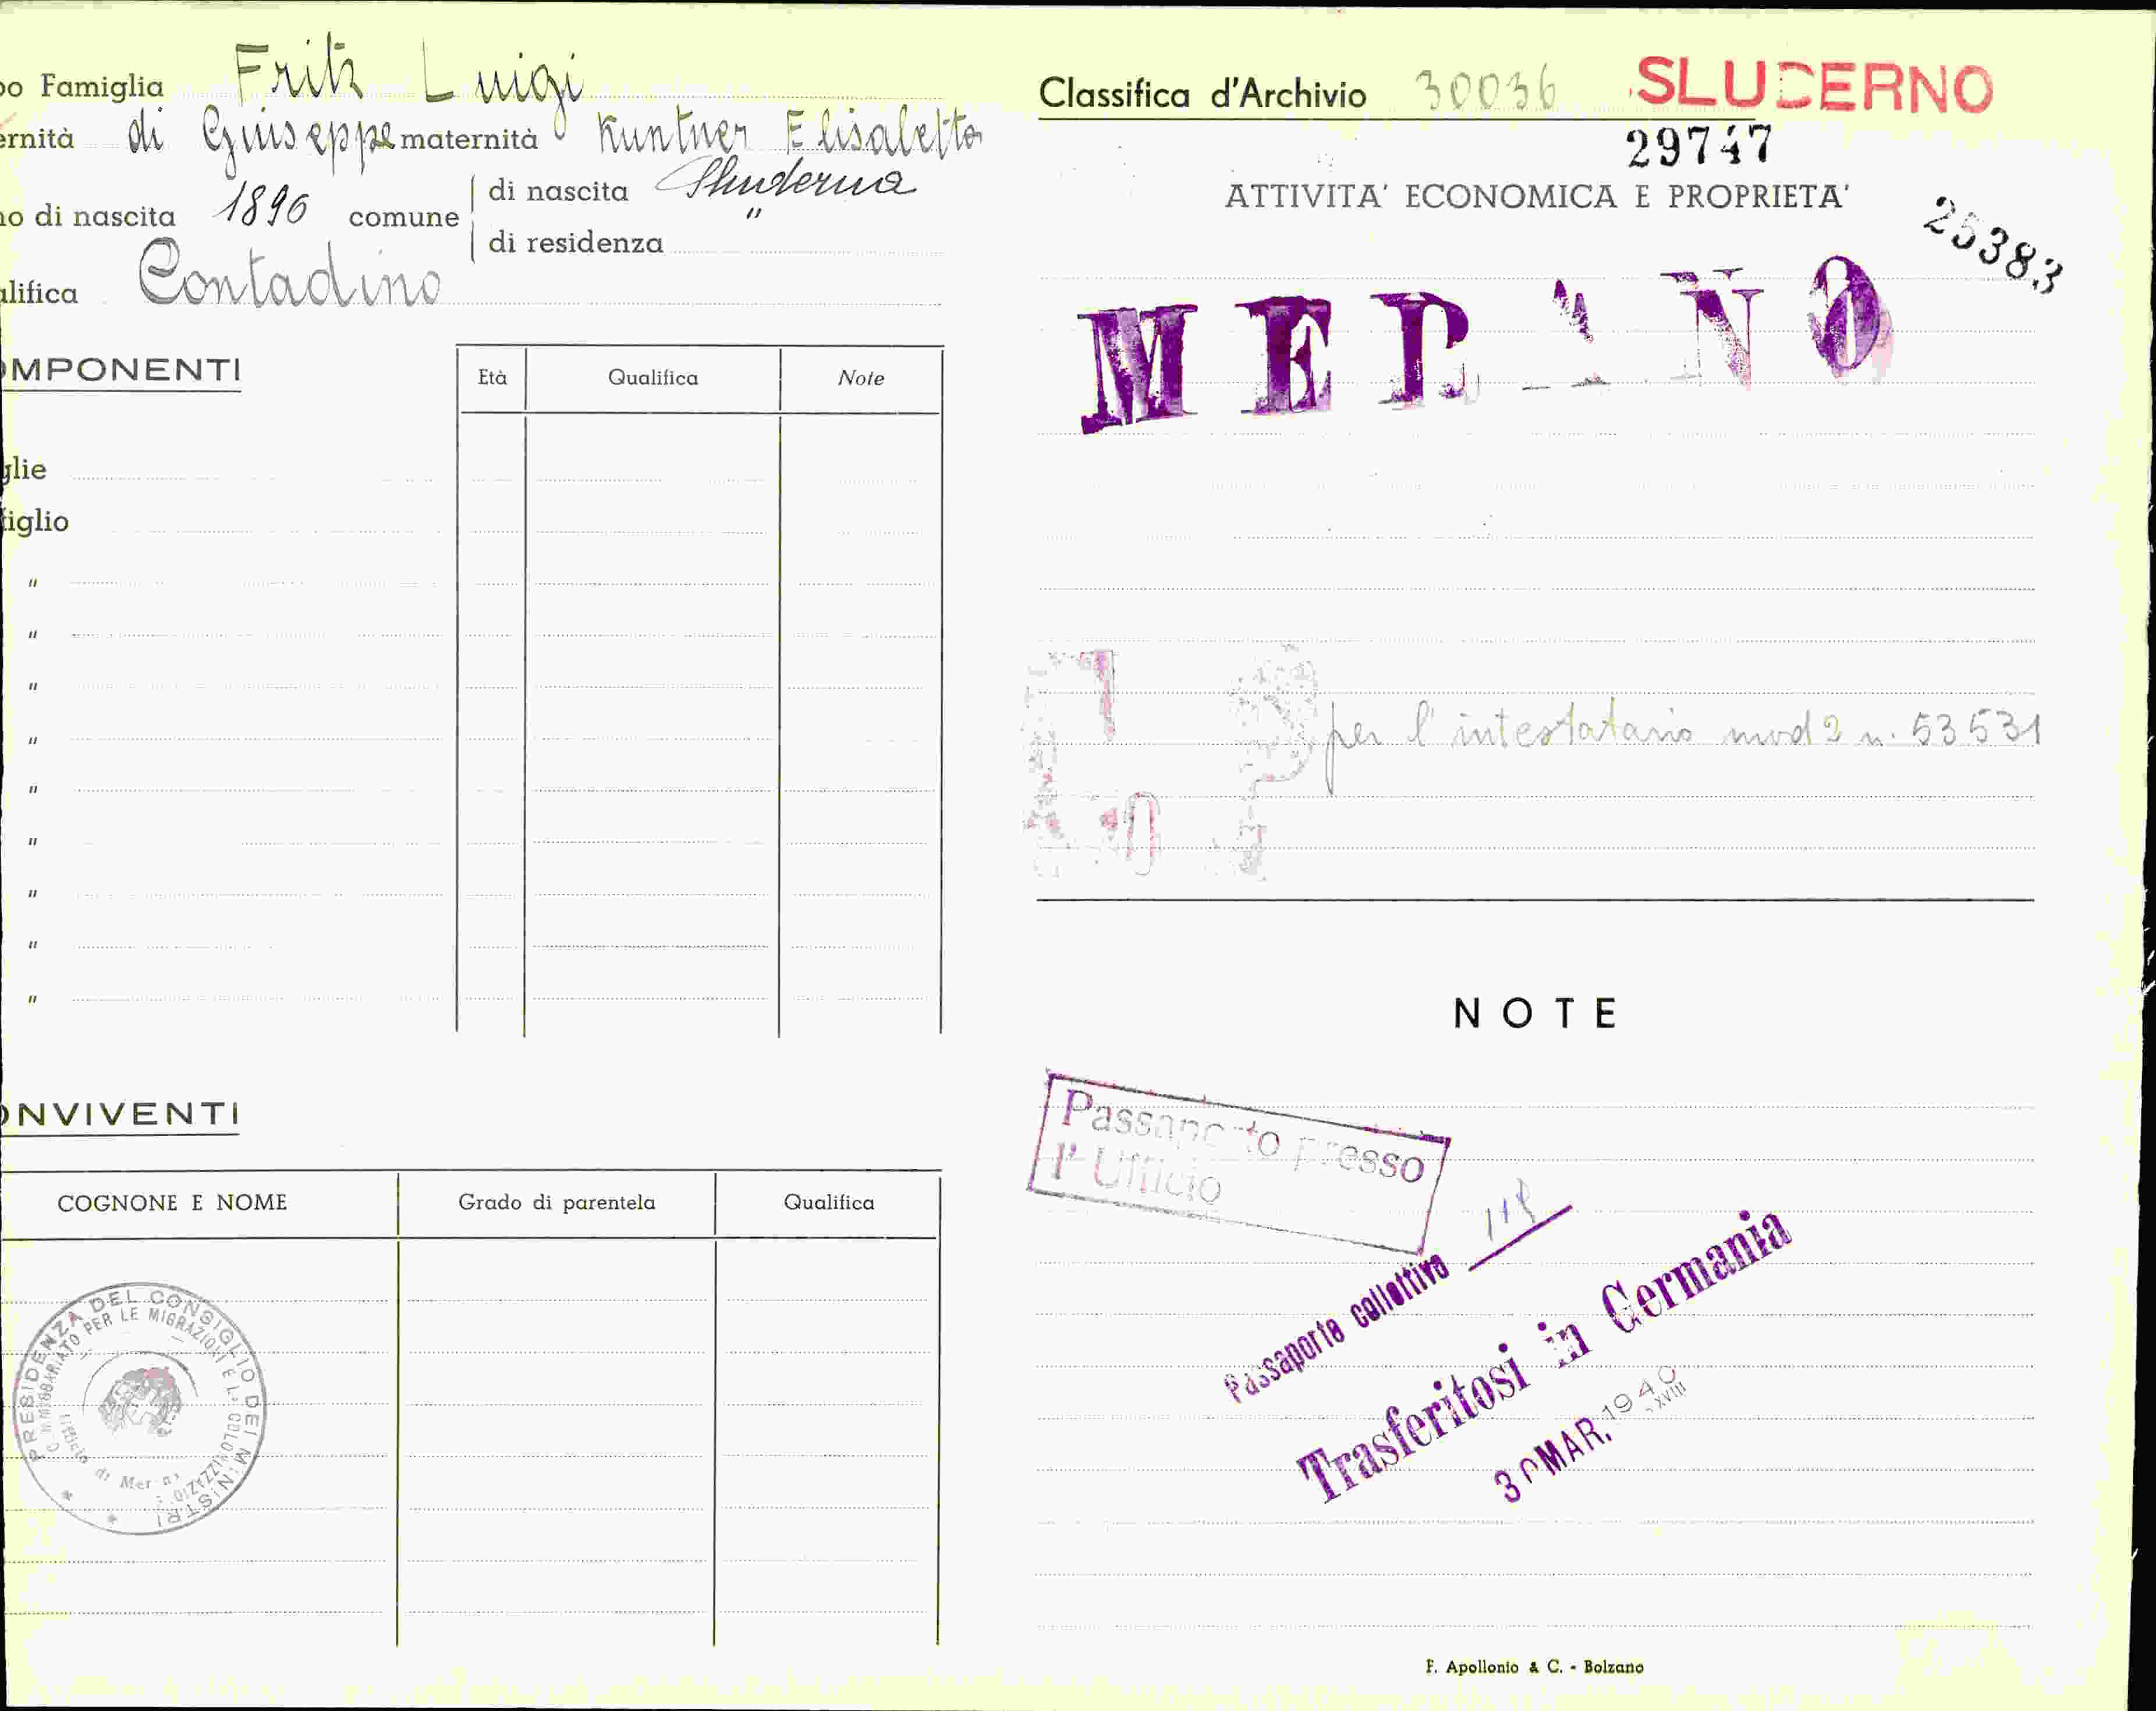 po Famiglia Fritz Luigi
ernità di Giuseppe maternità Kuntner Elisabetta
no di nascita 1896 comune di nascita Sluderno
di residenza "
alifica Contadino
OMPONENTI
Età Qualifica Note
glie
figlio
"
"
"
"
"
"
"
"
"
ONVIVENTI
COGNONE E NOME Grado di parentela Qualifica
PRESIDENZA DEL CONSIGLIO DEI MINISTRI
COMMISSARIATO PER LE MIGRAZIONI E LA COLONIZZAZIONE
Ufficio di Merano
Classifica d'Archivio 30036 SLUDERNO
29747
ATTIVITA' ECONOMICA E PROPRIETA'
25383
MERANO
per l'intestatario mod 2 n. 53531
NOTE
Passaporto presso
l'Ufficio
Passaporto collettivo 118
Trasferitosi in Germania
30 MAR. 1940 XVIII
F. Apollonio & C. - Bolzano